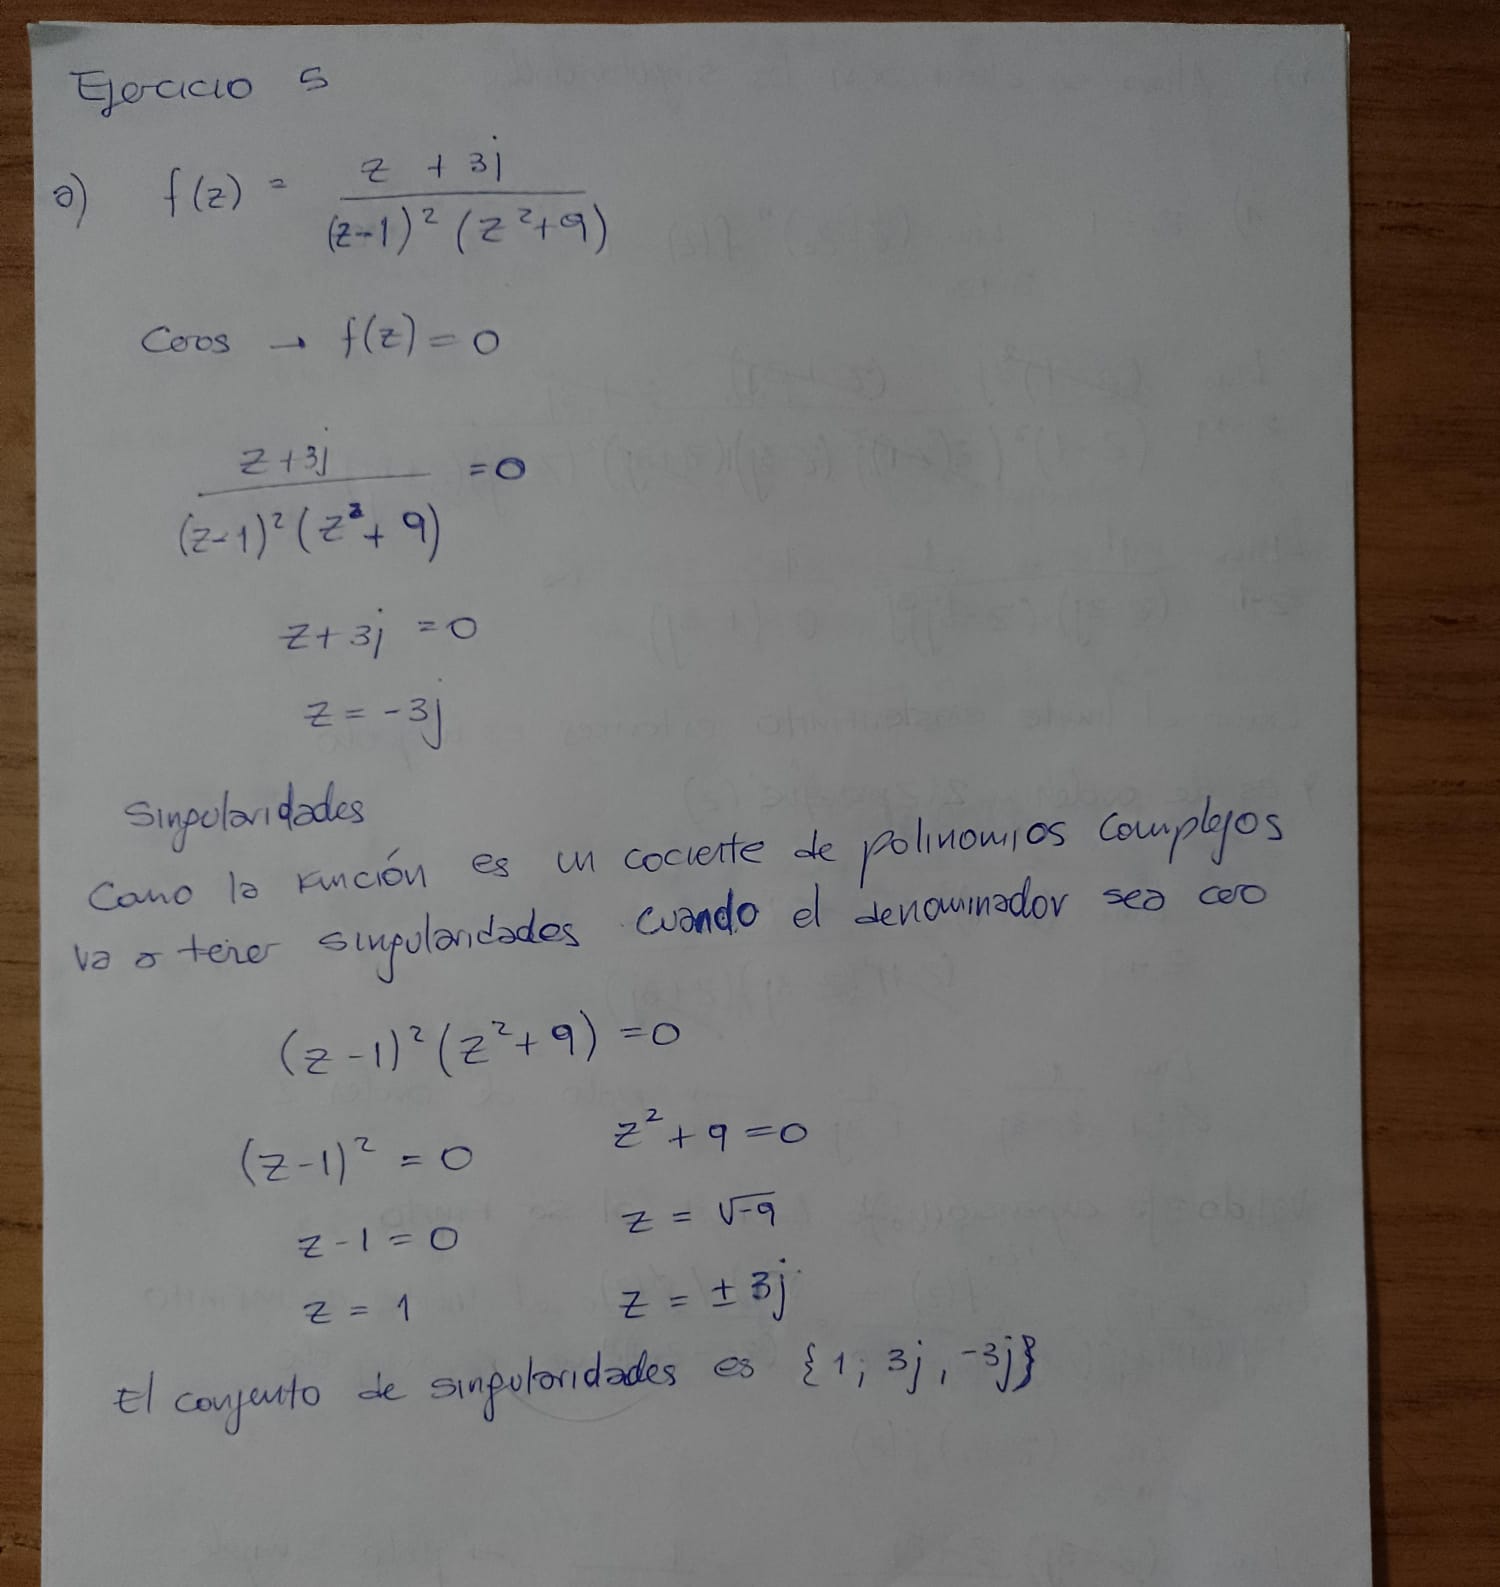 Ejercicio 5
a) f(z) = (z + 3j) / ((z-1)² (z²+9))
Ceros → f(z) = 0
(z+3j) / ((z-1)² (z²+9)) = 0
z+3j = 0
z = -3j
Singularidades
Como la función es un cociente de polinomios complejos
va a tener singularidades cuando el denominador sea cero
(z-1)² (z²+9) = 0
(z-1)² = 0 z²+9=0
z-1=0 z = √-9
z = 1 z = ± 3j
El conjunto de singularidades es {1; 3j, -3j}